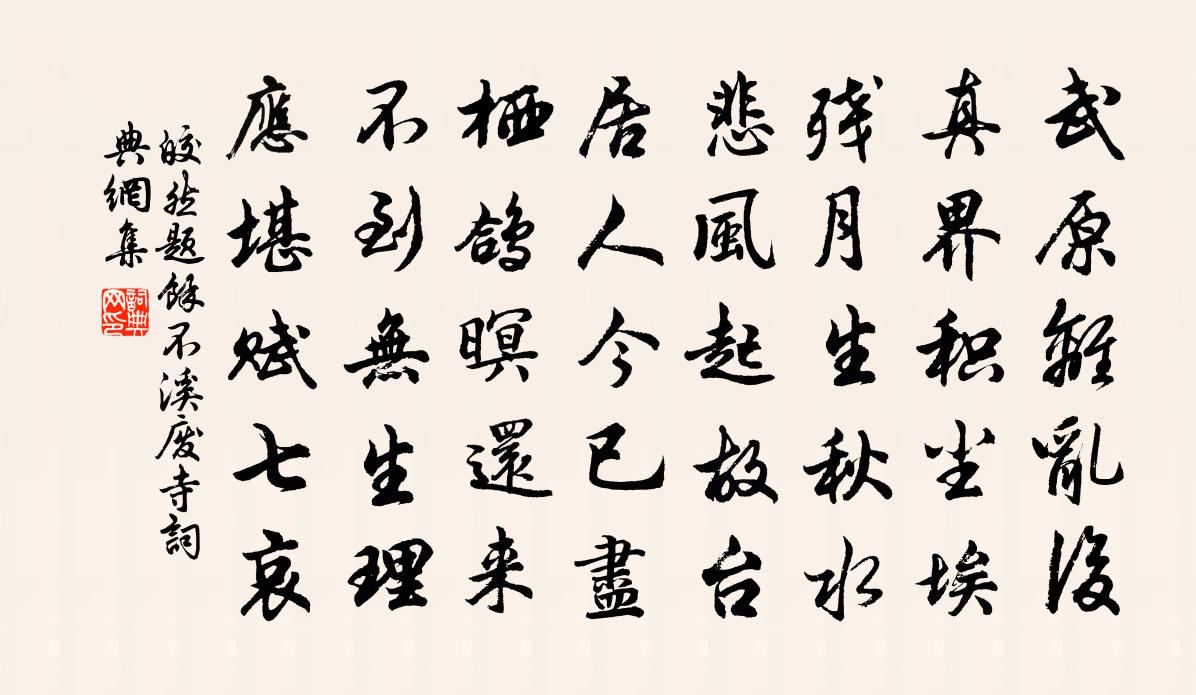 武原離亂後
真界积尘埃
残月生秋水
悲風起故台
居人今已盡
栖鴿暝還来
不到無生理
應堪赋七哀
皎然题餘不溪废寺詞
典網集
詞典
网印